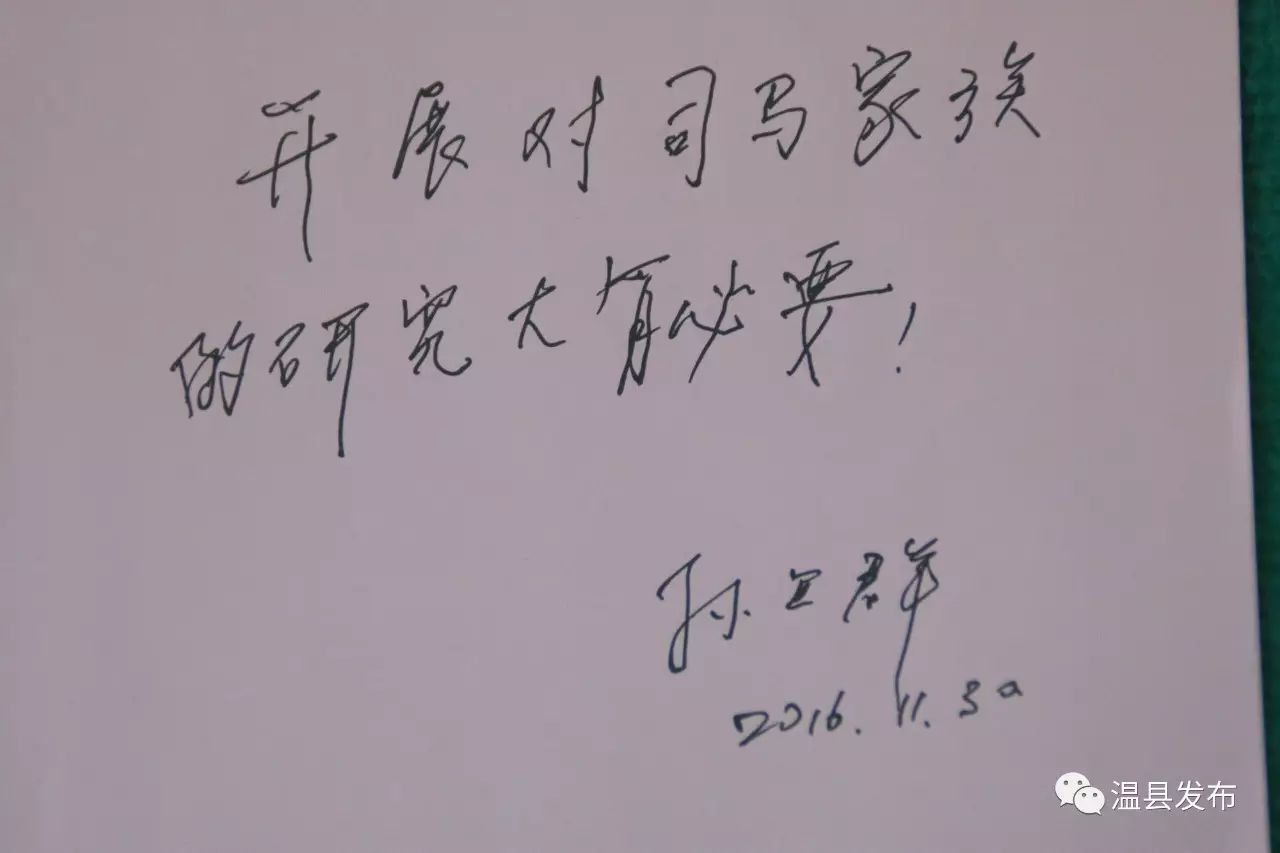 开展对司马家族
的研究大有必要!
孙立群
2016.11.30
温县发布